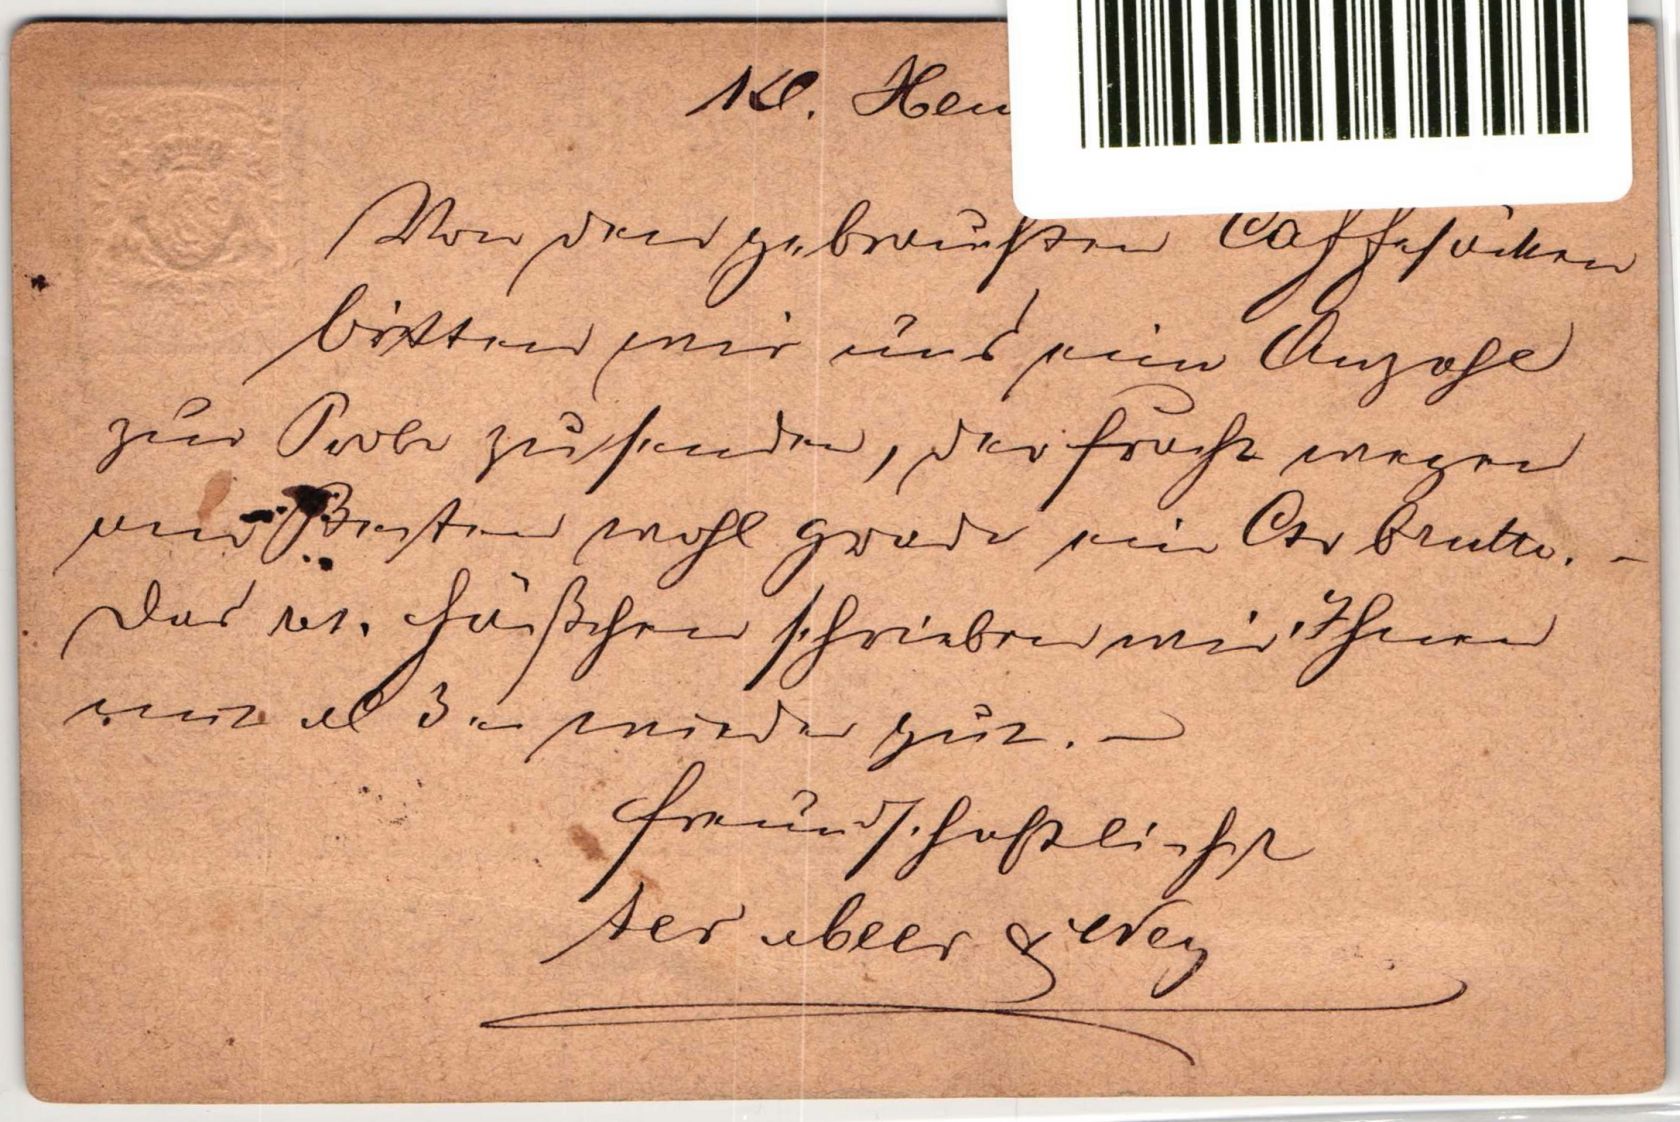 Kl. Heu
Von den gebrauchten Caffesäcken
bitten wir uns eine Anzahl
zur Probe zu senden, der Fracht wegen
am Besten wohl grade ein Ctr brutto. –
Das ret. Fäßchen schrieben wir Ihnen
mit M 3 wieder gut. –
Freundschaftlichst
ter &